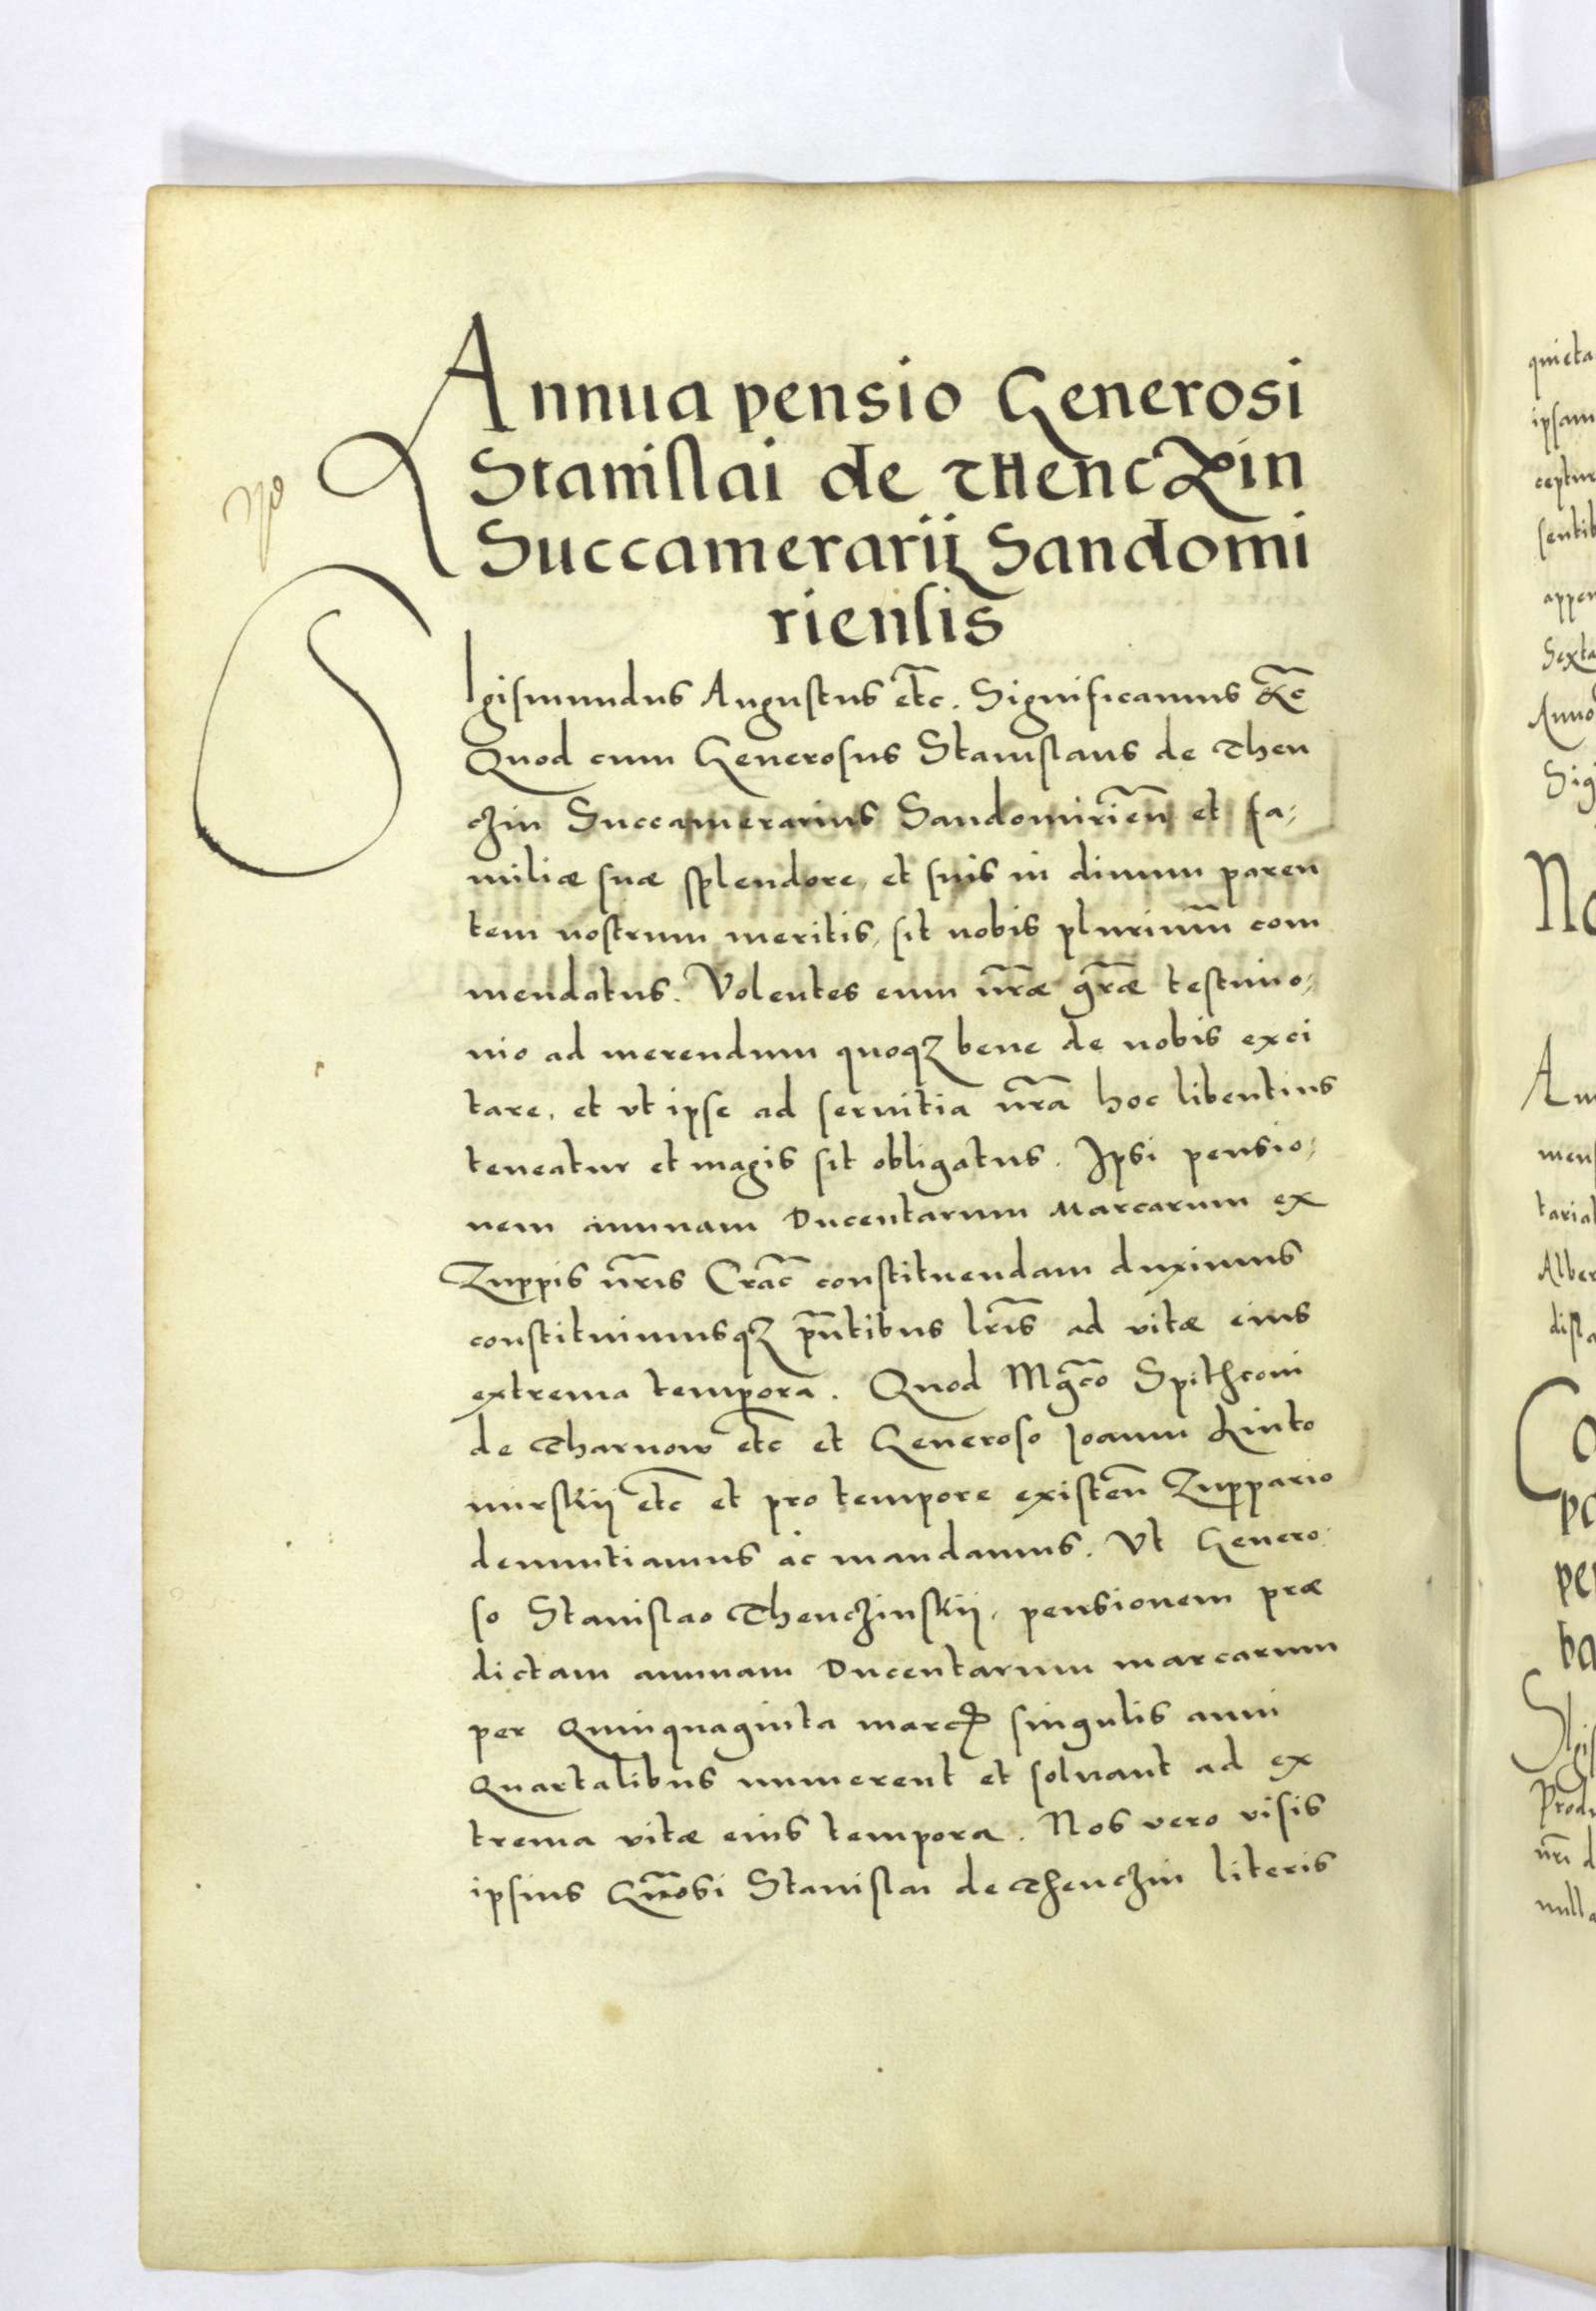 Annua pensio Generosi
Stanislai de Thenczin
Succamerarij Sandomi
riensis
SIgismundus Augustus etc̃. Significamus &c̃
Quod cum Generosus Stanislaus de Then
czin Succamerarius Sandomirien̄ et fa,
miliæ suæ splendore, et suis in diuum paren
tem nostrum meritis, sit nobis plurimũ com
mendatus. Volentes eum nr̃æ gr̃æ testimo,
nio ad merendum quoqȝ bene de nobis exci
tare, et vt ipse ad seruitia nr̃a hoc libentius
teneatur et magis sit obligatus. Ipsi pensio,
nem annuam Ducentarum Marcarum ex
Zuppis nr̃is Crac̃ constituendam duximus
constituimusqȝ pñtibus lr̃is ad vitæ eius
extrema tempora. Quod Mgc̃o Spithconi
de Tharnow etc̃ et Generoso Joanni Linto
mirskij etc̃ et pro tempore existen̄ Zuppario
denuntiamus ac mandamus. Vt Genero
so Stanislao Thenczinskij, pensionem præ
dictam annuam Ducentarum marcarum
per Quinquaginta marcꝝ singulis anni
Quartalibus numerent et soluant ad ex
trema vitæ eius tempora. Nos vero visis
ipsius Gnõsi Stanislai de Thenczin literis
quieta
ipsam
ceptur
sentib
appen
Sexta
Anno
Sigi
No
men
tariat
Alber
disla
Co
po
pe
ba
Produ
nr̃i d
nulla